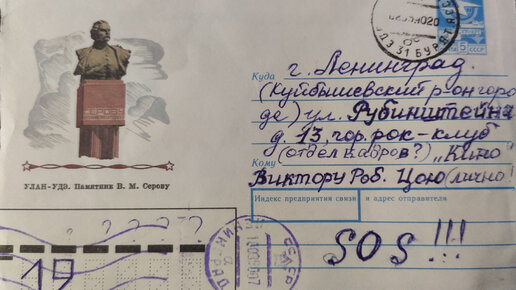 Куда г. Ленинград.
(Куйбышевский р-он горо
де) ул. Рубинштейна
д. 13, гор. рок-клуб
(отдел кадров?) „Кино"
Кому Виктору Роб. Цою (лично!
Индекс предприятия связи и адрес отправителя
SOS!!!
УЛАН-УДЭ. Памятник В. М. Серову
СЕРОВ
УДЭ 31 БУРЯТ АЗ
5 СССР
? ? ? ?
19